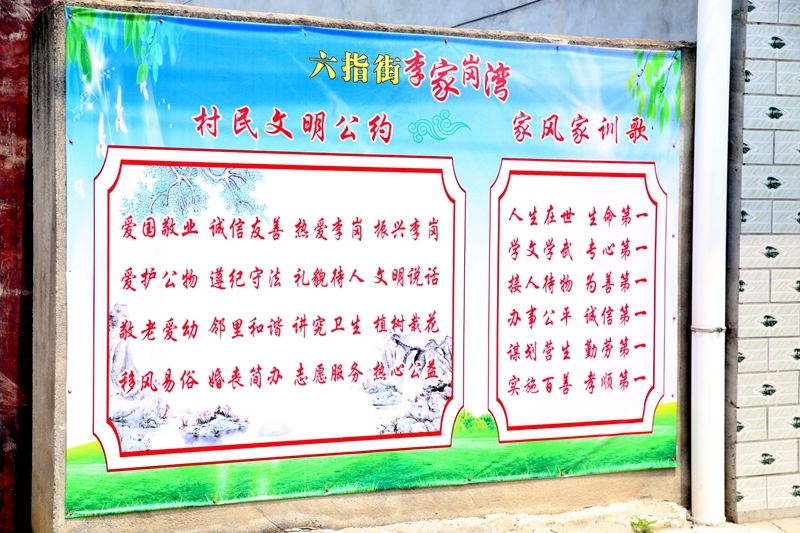 六指街李家岗湾
村民文明公约
爱国敬业 诚信友善 热爱李岗 振兴李岗
爱护公物 遵纪守法 礼貌待人 文明说话
敬老爱幼 邻里和谐 讲究卫生 植树栽花
移风易俗 婚丧简办 志愿服务 热心公益
家风家训歌
人生在世 生命第一
学文学武 专心第一
接人待物 为善第一
办事公平 诚信第一
谋划营生 勤劳第一
实施百善 孝顺第一